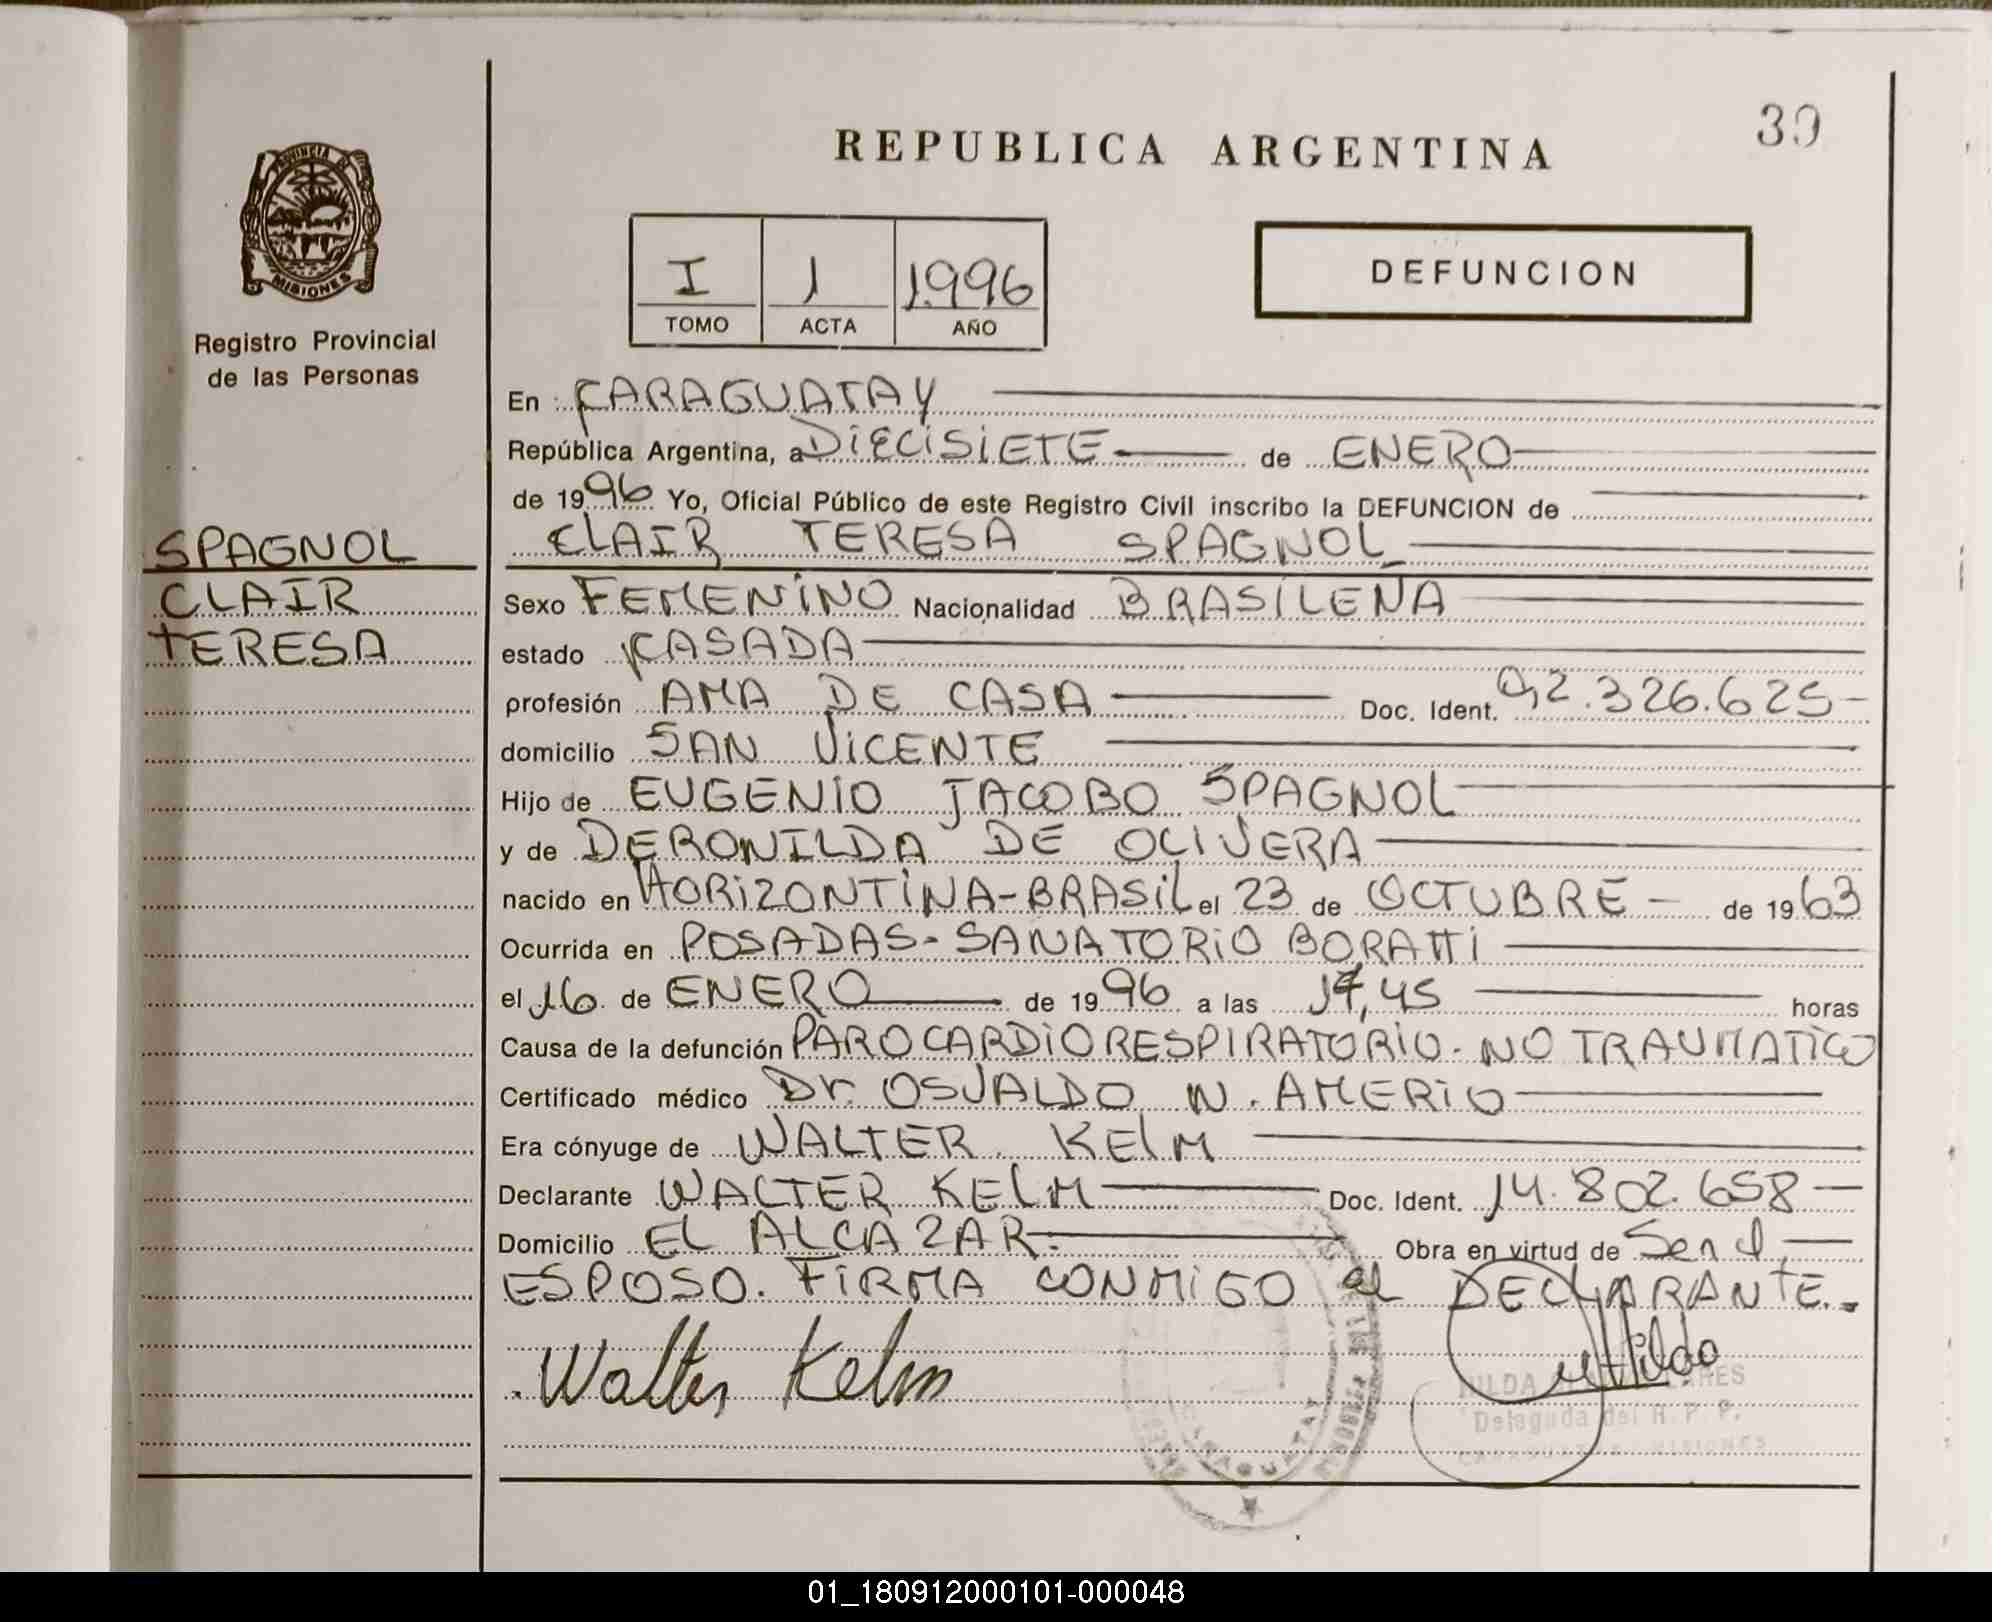 PROVINCIA DE
MISIONES
Registro Provincial
de las Personas
SPAGNOL
CLAIR
TERESA
39
REPUBLICA ARGENTINA
I 1 1996
TOMO ACTA AÑO
DEFUNCION
En CARAGUATAY
República Argentina, a DIECISIETE de ENERO
de 1996 Yo, Oficial Público de este Registro Civil inscribo la DEFUNCION de
CLAIR TERESA SPAGNOL
Sexo FEMENINO Nacionalidad BRASILEÑA
estado CASADA
profesión AMA DE CASA Doc. Ident. 92.326.625-
domicilio SAN VICENTE
Hijo de EUGENIO JACOBO SPAGNOL
y de DERONILDA DE OLIVERA
nacido en HORIZONTINA-BRASIL el 23 de OCTUBRE - de 1963
Ocurrida en POSADAS- SANATORIO BORATTI
el 16 de ENERO de 1996 a las 17,45 horas
Causa de la defunción PAROCARDIORESPIRATORIO- NO TRAUMATICO
Certificado médico Dr. OSVALDO N. AMERIO
Era cónyuge de WALTER KELM
Declarante WALTER KELM Doc. Ident. 14.802.658-
Domicilio EL ALCAZAR. Obra en virtud de Ser el
ESPOSO. FIRMA CONMIGO el DECLARANTE.-
Walter Kelm
HILDA
Delegada del R. P. P.
CARAGUATAY MISIONES
CARAGUATAY
01_180912000101-000048